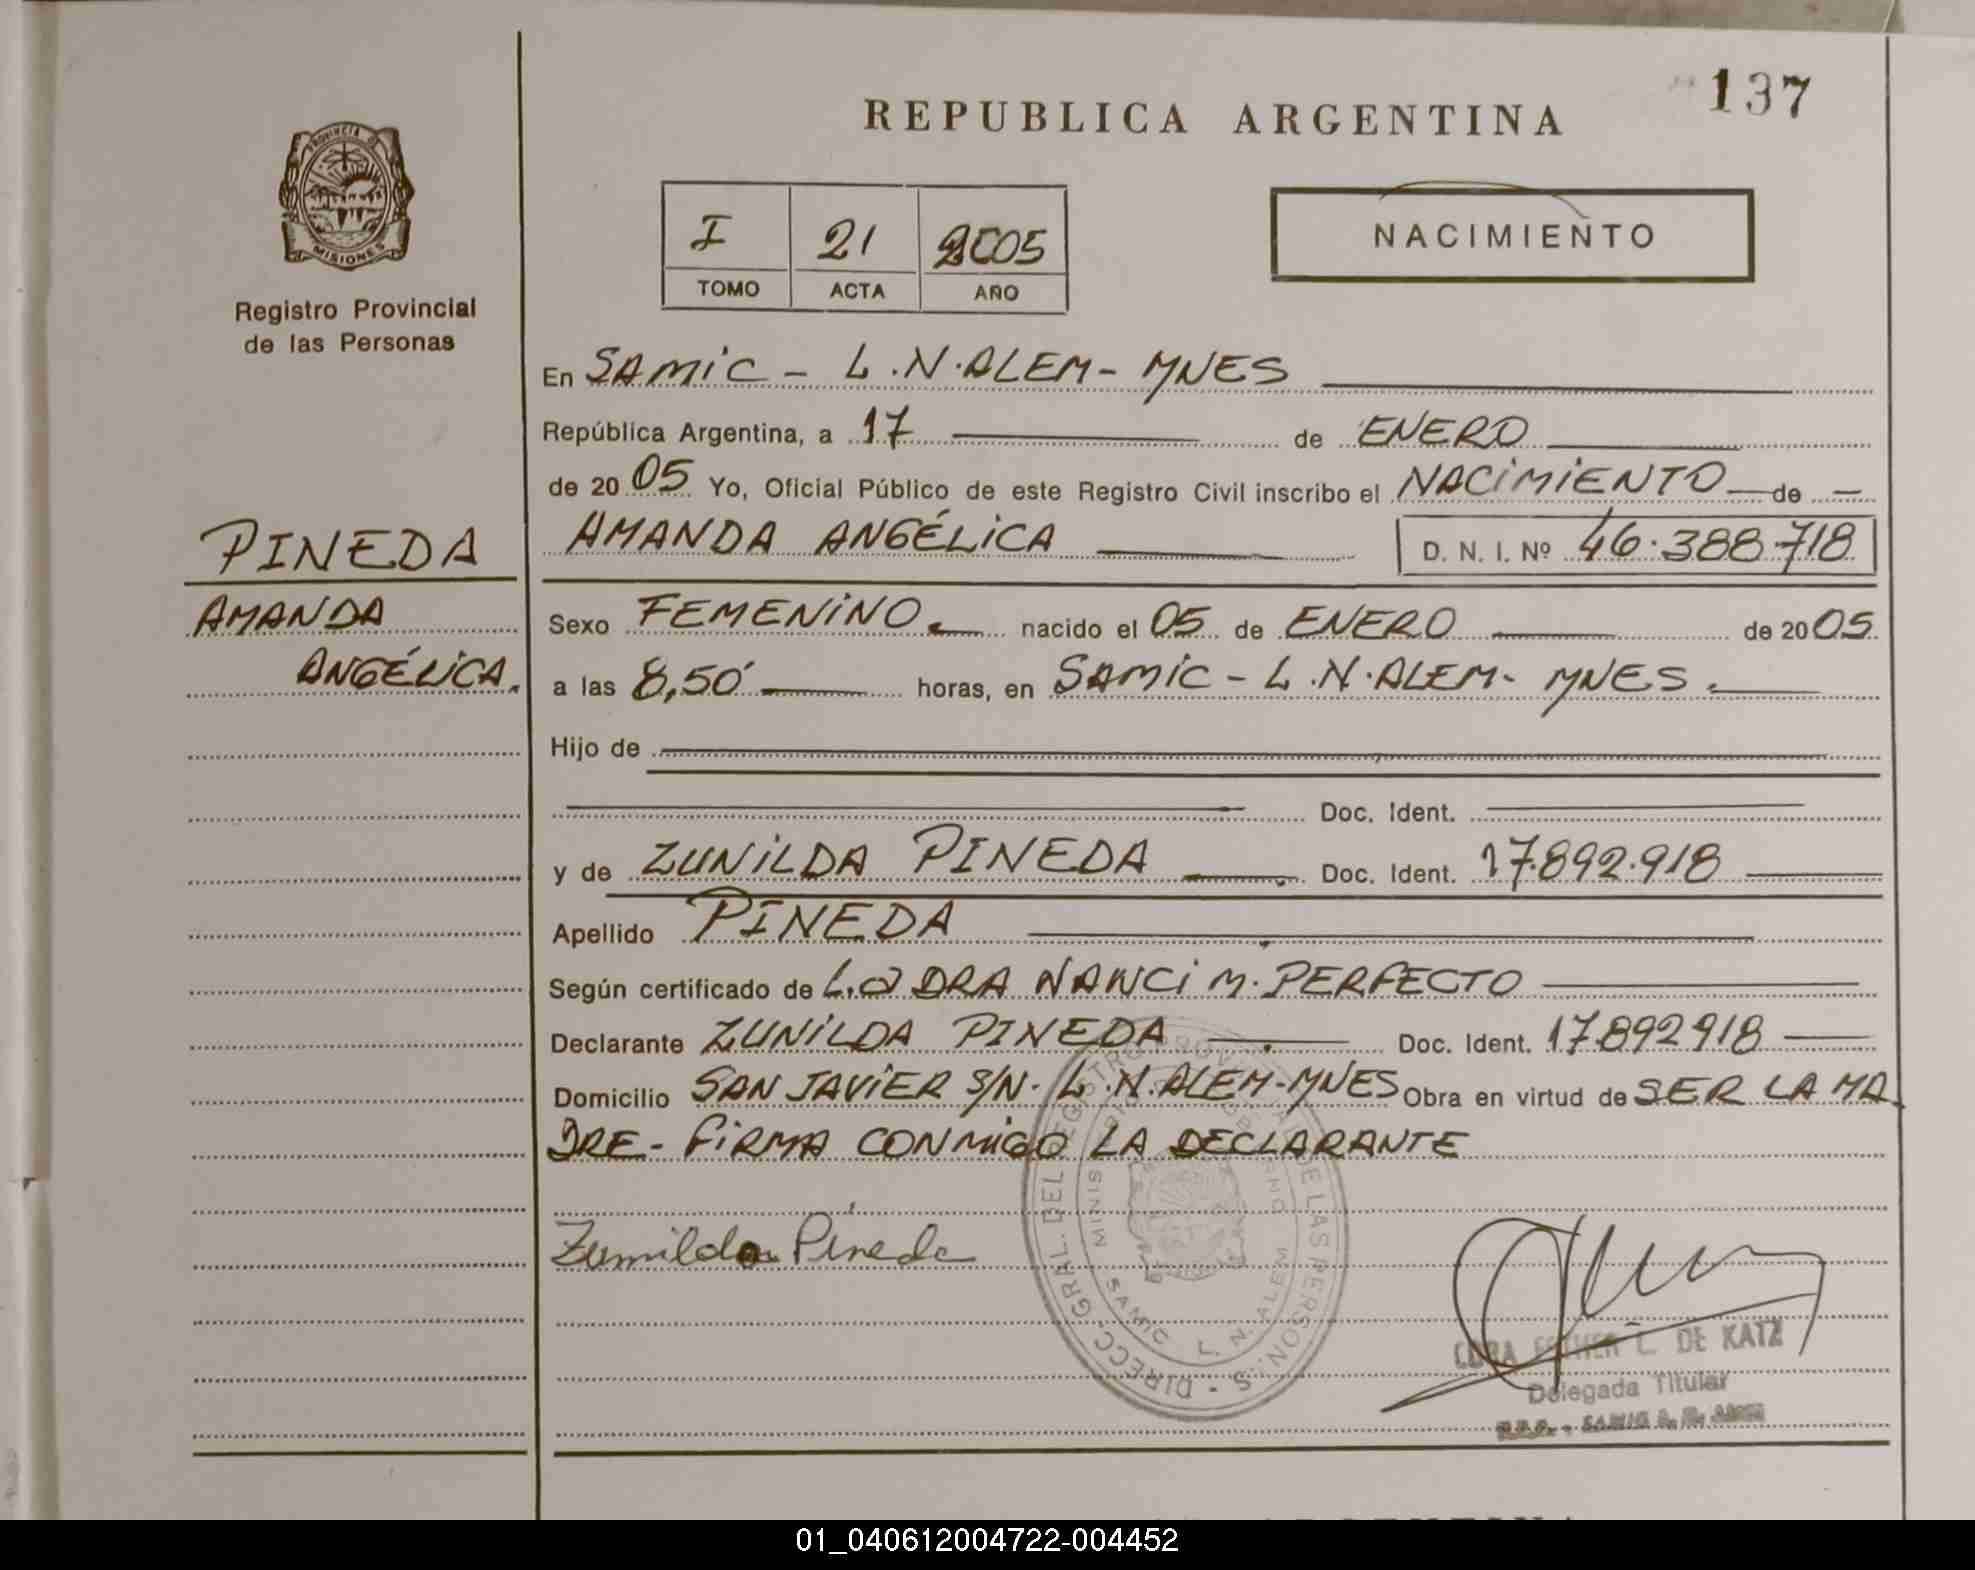 137
REPUBLICA ARGENTINA
PROVINCIA D
MISIONES
Registro Provincial
de las Personas
I 21 2005
TOMO ACTA AÑO
NACIMIENTO
En SAMIC - L.N.ALEM - MNES
República Argentina, a 17 de ENERO
de 20 05 Yo, Oficial Público de este Registro Civil inscribo el NACIMIENTO de
AMANDA ANGÉLICA D. N. I. Nº 46.388.718
PINEDA
AMANDA
ANGÉLICA.
Sexo FEMENINO. nacido el 05 de ENERO de 20 05
a las 8,50 horas, en SAMIC - L.N.ALEM - MNES.
Hijo de
Doc. Ident.
y de ZUNILDA PINEDA Doc. Ident. 17.892.918
Apellido PINEDA
Según certificado de La DRA NANCI M. PERFECTO
Declarante ZUNILDA PINEDA Doc. Ident. 17.892.918
Domicilio SAN JAVIER S/N. L.N.ALEM-MNES Obra en virtud de SER LA MA
DRE - FIRMA CONMIGO LA DECLARANTE
Zunilda Pineda
DIRECC. GRAL. DEL REGISTRO PROVINCIAL DE LAS PERSONAS
SAMIC L. N. ALEM
ESTHER L. DE KATZ
Delegada Titular
01_040612004722-004452